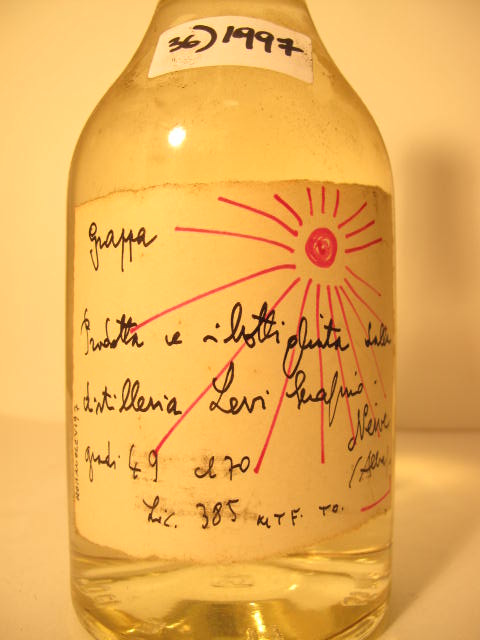 36) 1997
Grappa
Prodotta e imbottigliata dalla
distilleria Levi Serafino
Neive
gradi 49 cl 70
(Alba)
Lic. 385 M T F. TO.